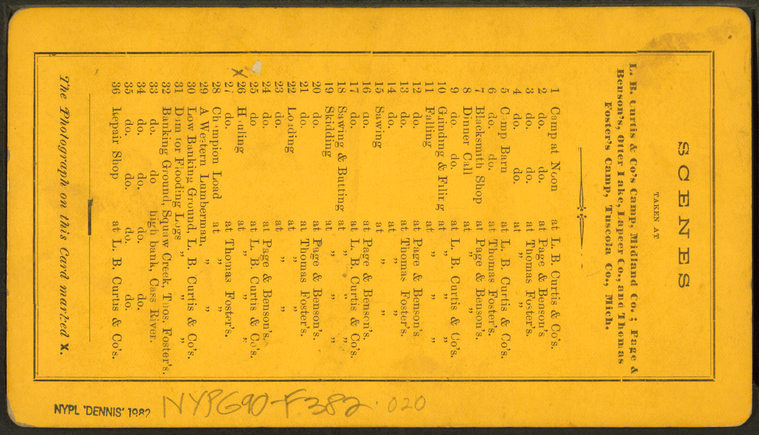 SCENES
TAKEN AT
L. B. Curtis & Co's Camp, Midland Co.; Page &
Benson's, Otter Lake, Lapeer Co., and Thomas
Foster's Camp, Tuscola Co., Mich.
1 Camp at Noon at L. B. Curtis & Co's.
2 do. do. at Page & Benson's
3 do. do. at Thomas Foster's.
4 do. do. at " "
5 Camp Barn at L. B. Curtis & Co's.
6 do. do. at Thomas Foster's.
7 Blacksmith Shop at Page & Benson's.
8 Dinner Call " "
9 do. do. at L. B. Curtis & Co's.
10 Grinding & Filing at " "
11 Falling at " "
12 do. at Page & Benson's.
13 do. at Thomas Foster's.
14 do. at " "
15 Sawing at " "
16 do. at Page & Benson's.
17 do. at L. B. Curtis & Co's.
18 Sawing & Butting at " "
19 Skidding at " "
20 do. at Page & Benson's.
21 do. at Thomas Foster's.
22 Loading at " "
23 do. at " "
24 do. at Page & Benson's.
25 do at L. B. Curtis & Co's.
x 26 Hauling at " "
27 do. at Thomas Foster's.
28 Champion Load at " "
29 A Western Lumberman, " "
30 Low Banking Ground, L. B. Curtis & Co's.
31 Dam for Flooding Logs " "
32 Banking Ground, Squaw Creek, Thos Foster's.
33 do. do high bank, Cass River.
34 do. do. do. do.
35 do. do. do. do.
36 Repair Shop at L. B. Curtis & Co's.
The Photograph on this Card marked X.
NYPL "DENNIS" 1982 NYPG90-F382 020